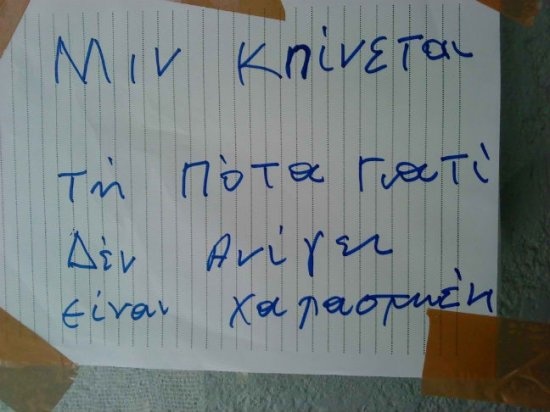 Μιν κπίνεται
τή πότα γιατί
Δέν Ανίγει
είναι χαπασμκέη